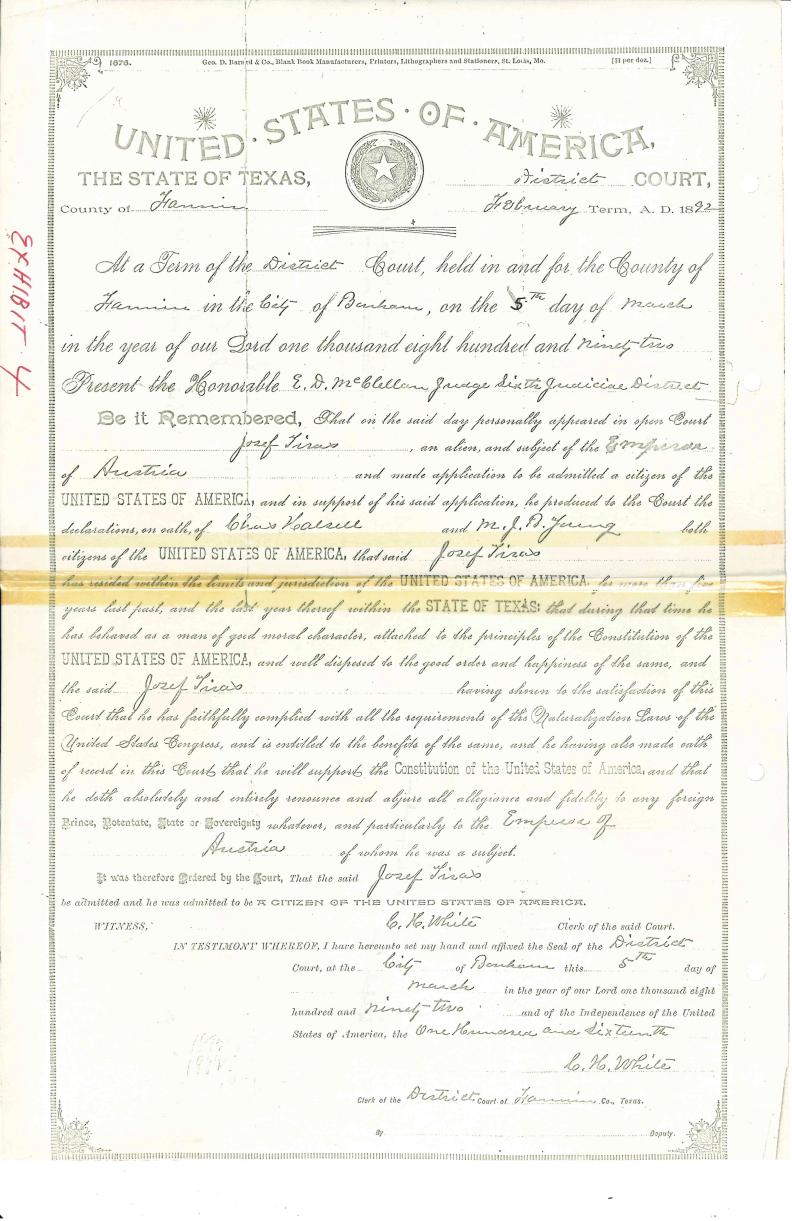 1676.
Geo. D. Barnard & Co., Blank Book Manufacturers, Printers, Lithographers and Stationers, St. Louis, Mo.
[$1 per doz.]
UNITED · STATES · OF · AMERICA,
THE STATE OF TEXAS, District COURT,
County of Fannin February Term, A. D. 1892
EXHIBIT 4
At a Term of the District Court, held in and for the County of
Fannin in the City of Bonham, on the 5th day of March
in the year of our Lord one thousand eight hundred and ninety-two
Present the Honorable E. D. McClellan Judge Sixth Judicial District
Be it Remembered, That on the said day personally appeared in open Court
Josef Tiras, an alien, and subject of the Emperor
of Austria and made application to be admitted a citizen of the
UNITED STATES OF AMERICA, and in support of his said application, he produced to the Court the
declarations, on oath, of Chas Halsell and M. J. B. Young both
citizens of the UNITED STATES OF AMERICA, that said Josef Tiras
has resided within the limits and jurisdiction of the UNITED STATES OF AMERICA, for more than five
years last past, and the last year thereof within the STATE OF TEXAS; that during that time he
has behaved as a man of good moral character, attached to the principles of the Constitution of the
UNITED STATES OF AMERICA, and well disposed to the good order and happiness of the same, and
the said Josef Tiras having shown to the satisfaction of this
Court that he has faithfully complied with all the requirements of the Naturalization Laws of the
United States Congress, and is entitled to the benefits of the same, and he having also made oath
of record in this Court that he will support the Constitution of the United States of America, and that
he doth absolutely and entirely renounce and abjure all allegiance and fidelity to any foreign
Prince, Potentate, State or Sovereignty whatever, and particularly to the Emperor of
Austria of whom he was a subject.
It was therefore Ordered by the Court, That the said Josef Tiras
be admitted and he was admitted to be A CITIZEN OF THE UNITED STATES OF AMERICA.
WITNESS, C. H. White Clerk of the said Court.
IN TESTIMONY WHEREOF, I have hereunto set my hand and affixed the Seal of the District
Court, at the City of Bonham this 5th day of
March in the year of our Lord one thousand eight
hundred and ninety-two and of the Independence of the United
States of America, the One Hundred and Sixteenth
C. H. White
Clerk of the District Court of Fannin Co., Texas.
By Deputy.